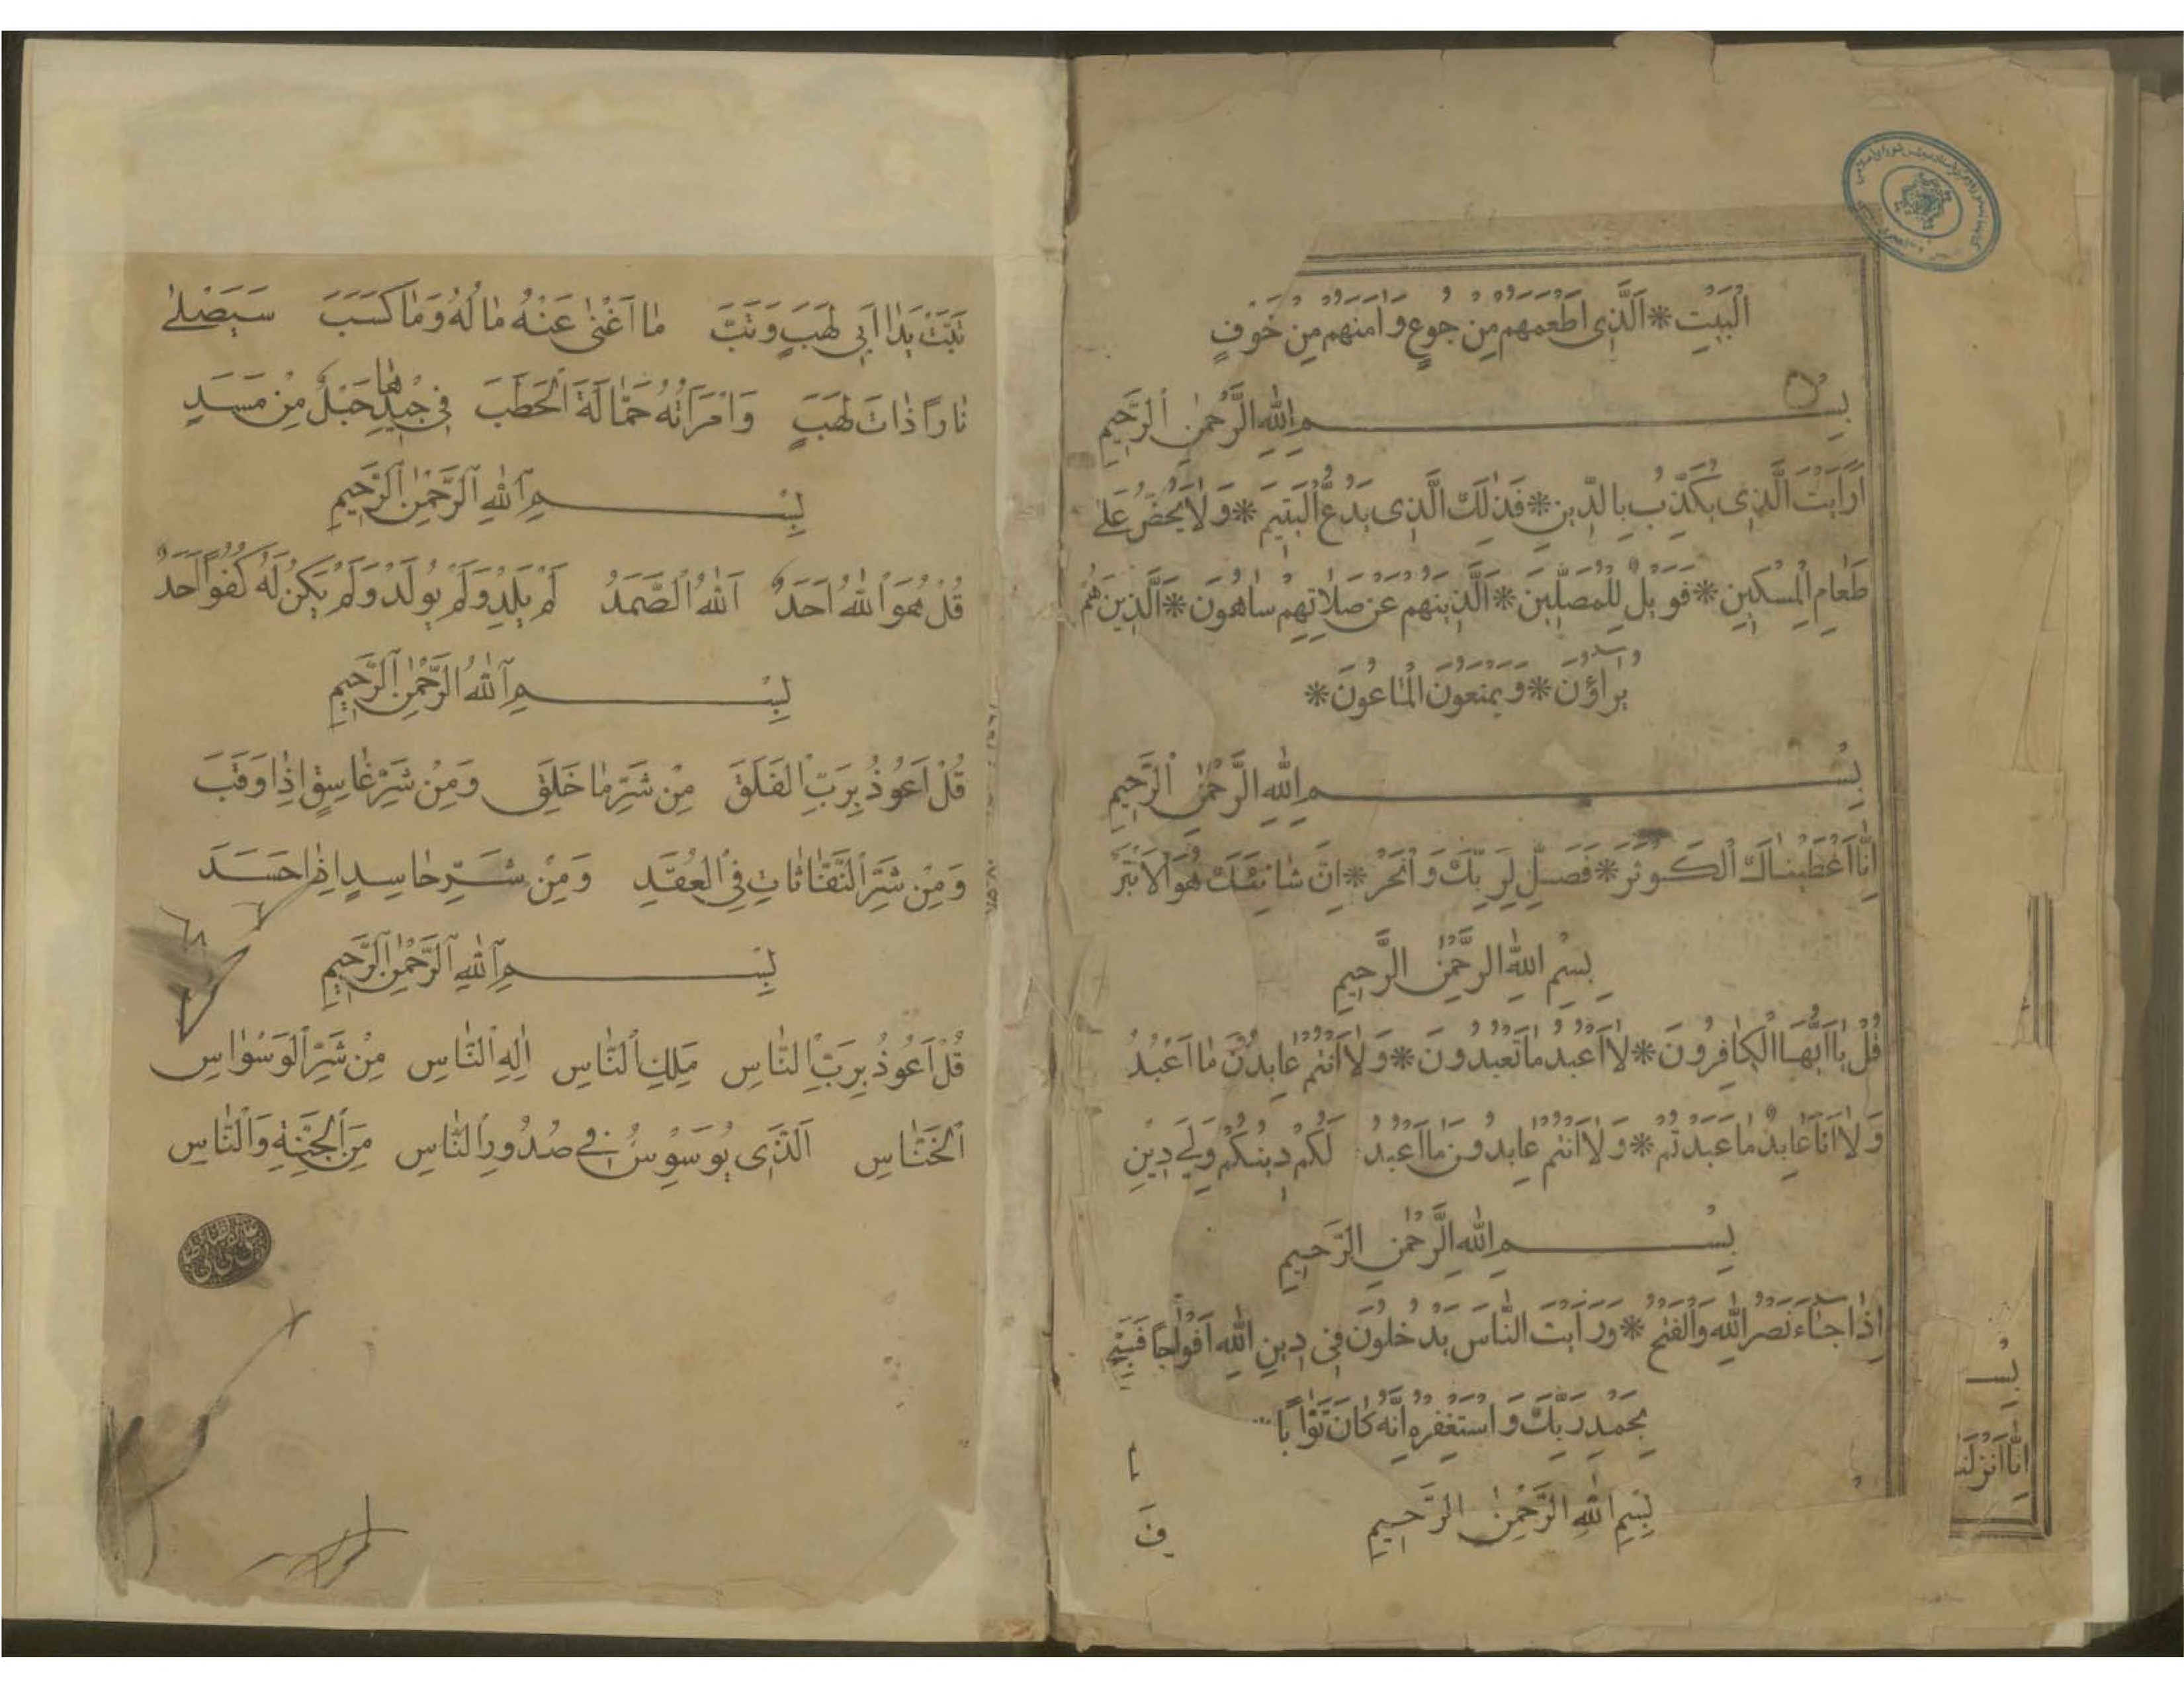 الْبَيْتِ * اَلَّذِى اَطْعَمَهُمْ مِنْ جُوعٍ وَاٰمَنَهُمْ مِنْ خَوْفٍ
بِسْمِ اللّٰهِ الرَّحْمٰنِ الرَّحِيمِ
اَرَاَيْتَ الَّذِى يُكَذِّبُ بِالدِّينِ * فَذٰلِكَ الَّذِى يَدُعُّ الْيَتِيمَ * وَلَا يَحُضُّ عَلٰى
طَعَامِ الْمِسْكِينِ * فَوَيْلٌ لِلْمُصَلِّينَ * اَلَّذِينَهُمْ عَنْ صَلَاتِهِمْ سَاهُونَ * اَلَّذِينَ هُمْ
يُرَاؤُنَ * وَيَمْنَعُونَ الْمَاعُونَ *
بِسْمِ اللّٰهِ الرَّحْمٰنِ الرَّحِيمِ
اِنَّا اَعْطَيْنَاكَ الْكَوْثَرَ * فَصَلِّ لِرَبِّكَ وَانْحَرْ * اِنَّ شَانِئَكَ هُوَ الْاَبْتَرُ
بِسْمِ اللّٰهِ الرَّحْمٰنِ الرَّحِيمِ
قُلْ يَا اَيُّهَا الْكَافِرُونَ * لَا اَعْبُدُ مَا تَعْبُدُونَ * وَلَا اَنْتُمْ عَابِدُونَ مَا اَعْبُدُ
وَلَا اَنَا عَابِدٌ مَا عَبَدْتُمْ * وَلَا اَنْتُمْ عَابِدُونَ مَا اَعْبُدُ لَكُمْ دِينُكُمْ وَلِيَ دِينِ
بِسْمِ اللّٰهِ الرَّحْمٰنِ الرَّحِيمِ
اِذَا جَاءَ نَصْرُ اللّٰهِ وَالْفَتْحُ * وَرَاَيْتَ النَّاسَ يَدْخُلُونَ فِى دِينِ اللّٰهِ اَفْوَاجًا فَسَبِّحْ
بِحَمْدِ رَبِّكَ وَاسْتَغْفِرْهُ اِنَّهُ كَانَ تَوَّابًا
بِسْمِ اللّٰهِ الرَّحْمٰنِ الرَّحِيمِ
بِسْـ
اِنَّا اَنْزَلْنَا
تَبَّتْ يَدَا اَبِى لَهَبٍ وَتَبَّ مَا اَغْنٰى عَنْهُ مَالُهُ وَمَا كَسَبَ سَيَصْلٰى
نَارًا ذَاتَ لَهَبٍ وَامْرَاَتُهُ حَمَّالَةَ الْحَطَبِ فِى جِيدِهَا حَبْلٌ مِنْ مَسَدٍ
بِسْمِ اللّٰهِ الرَّحْمٰنِ الرَّحِيمِ
قُلْ هُوَ اللّٰهُ اَحَدٌ اَللّٰهُ الصَّمَدُ لَمْ يَلِدْ وَلَمْ يُولَدْ وَلَمْ يَكُنْ لَهُ كُفُوًا اَحَدٌ
بِسْمِ اللّٰهِ الرَّحْمٰنِ الرَّحِيمِ
قُلْ اَعُوذُ بِرَبِّ الْفَلَقِ مِنْ شَرِّ مَا خَلَقَ وَمِنْ شَرِّ غَاسِقٍ اِذَا وَقَبَ
وَمِنْ شَرِّ النَّفَّاثَاتِ فِى الْعُقَدِ وَمِنْ شَرِّ حَاسِدٍ اِذَا حَسَدَ
بِسْمِ اللّٰهِ الرَّحْمٰنِ الرَّحِيمِ
قُلْ اَعُوذُ بِرَبِّ النَّاسِ مَلِكِ النَّاسِ اِلٰهِ النَّاسِ مِنْ شَرِّ الْوَسْوَاسِ
الْخَنَّاسِ اَلَّذِى يُوَسْوِسُ فِى صُدُورِ النَّاسِ مِنَ الْجِنَّةِ وَالنَّاسِ